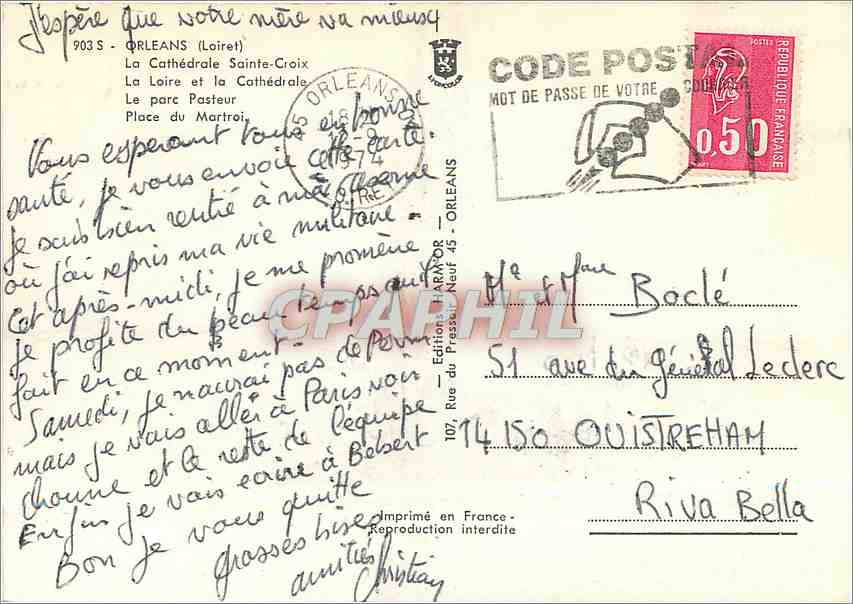 J'espère que votre mère va mieux
903 S - ORLEANS (Loiret)
La Cathédrale Sainte-Croix
La Loire et la Cathédrale
Le parc Pasteur
Place du Martroi
APERCOLOR
45 ORLEANS
18 H
12-9
1974
CODE POSTAL
MOT DE PASSE DE VOTRE COURRIER
POSTES
REPUBLIQUE FRANÇAISE
0,50
Vous esperant tous en bonne
santé, je vous envoie cette carte.
Je suis bien rentré à ma caserne
où j'ai repris ma vie militaire.
Cet après-midi, je me promène
je profite du beau temps qu'il
fait en ce moment.
Samedi, je n'aurai pas de Perm
mais je vais aller à Paris voir
et le reste de l'équipe
Enfin je vais écrire à Bebert
Bon je vous quitte
grosses bises
amitiés Christian
Editions HARM'OR
107, Rue du Pressoir Neuf 45 - ORLEANS
Mr et Mme Boclé
51 ave du Général Leclerc
14150 OUISTREHAM
Riva Bella
Imprimé en France -
Reproduction interdite
CPAPHIL